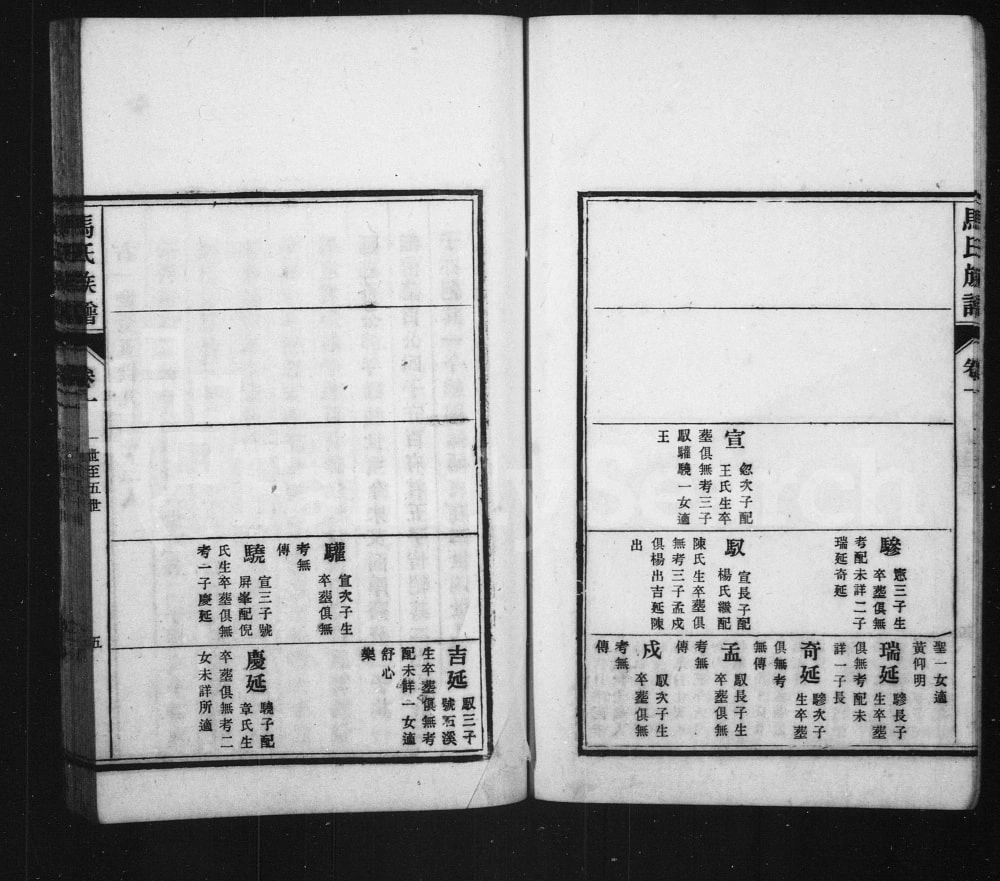 馬氏族譜
卷一
宣
忽次子配
王氏生卒
塟俱無考三子
馭驩驍一女適
王
驂
憲三子生
卒塟俱無
考配未詳二子
瑞延奇延
馭
宣長子配
楊氏繼配
陳氏生卒塟俱
無考三子孟戍
俱楊出吉延陳
出
聖一女適
黃仰明
瑞延
驂長子
生卒塟
俱無考配未
詳一子長
奇延
驂次子
生卒塟
俱無考
無傳
孟
馭長子生
卒塟俱無
考無
傳
戍
馭次子生
卒塟俱無
考無
傳
驩
宣次子生
卒塟俱無
考無
傳
驍
宣三子號
屏峯配倪
氏生卒塟俱無
考一子慶延
吉延
馭三子
號石溪
生卒塟俱無考
配未詳一女適
舒心
樂
慶延
驍子配
章氏生
卒塟俱無考二
女未詳所適
馬氏族譜
卷一
一世至五世
五